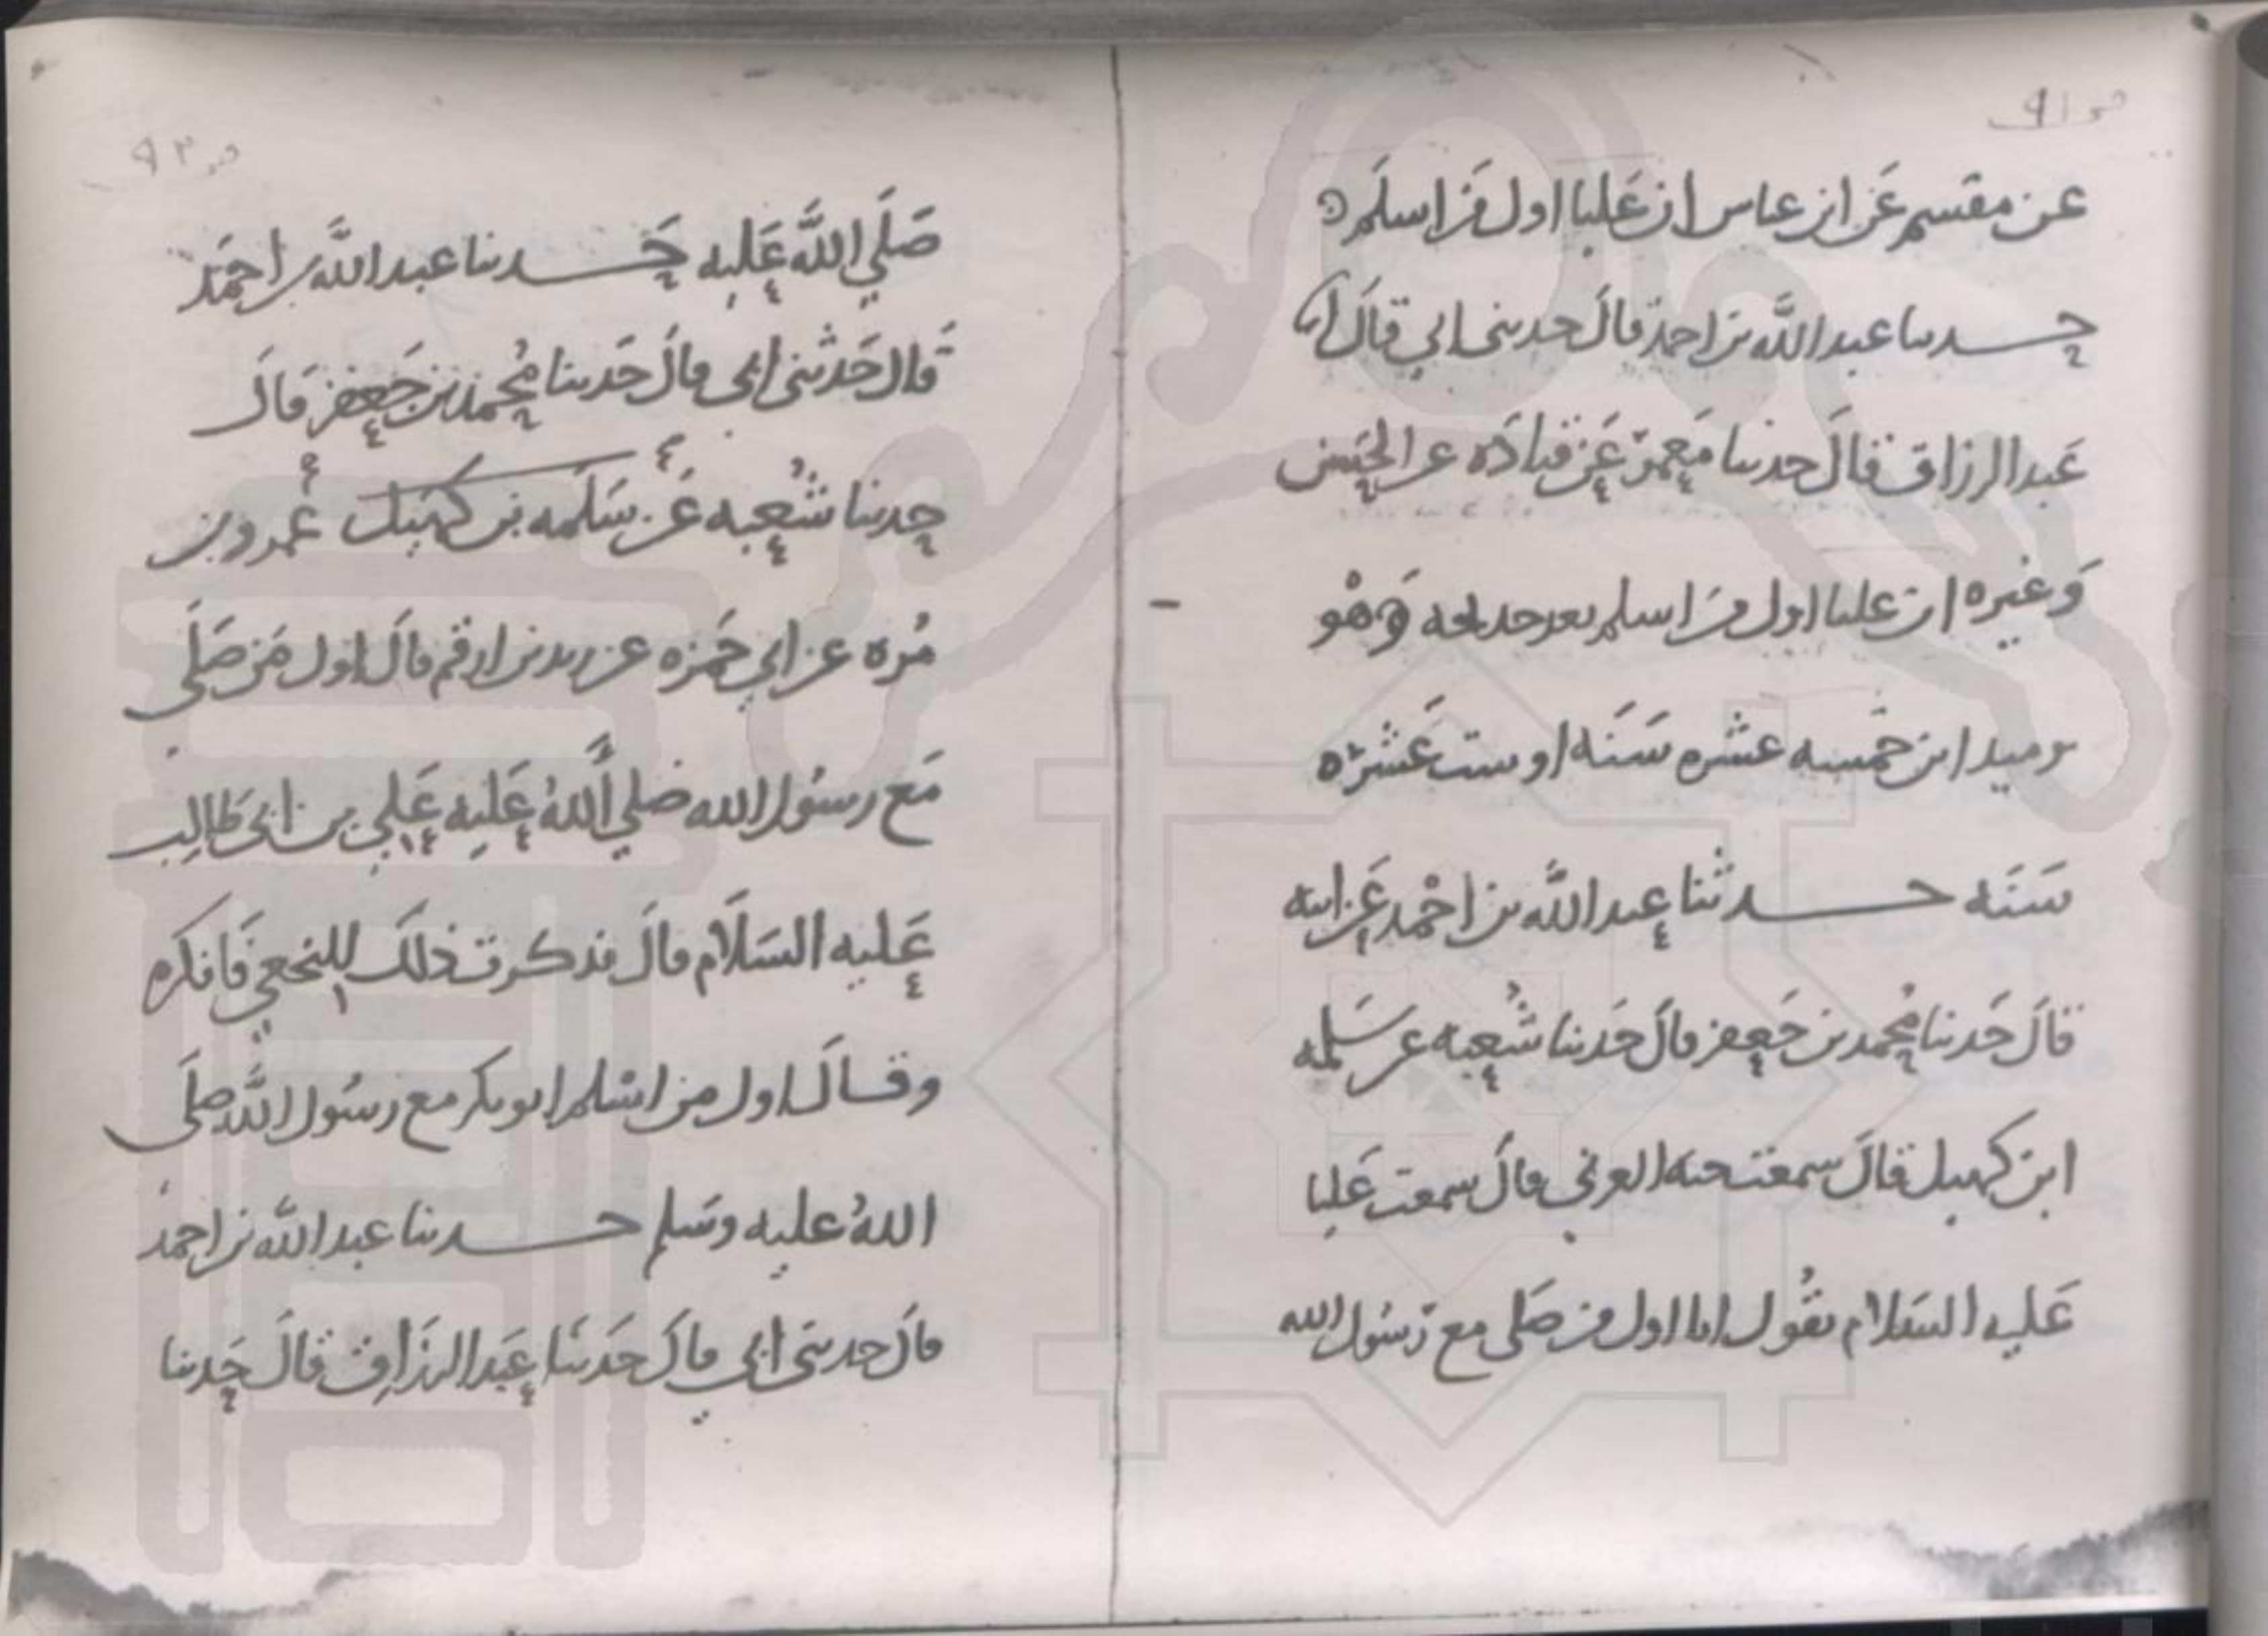 ص ٩١
عن مقسم عن ابن عباس ان عليا اول من اسلم ه
حدثنا عبد الله بن احمد قال حدثنى ابي قال انا
عبد الرزاق قال حدثنا معمر عن قتاده عن الحسن
وغيره ان عليا اول من اسلم بعد خديجه وهو
يوميد ابن خمسه عشره سنه او ست عشره
سنه حدثنا عبد الله بن احمد عن ابيه
قال حدثنا محمد بن جعفر قال حدثنا شعبه عن سلمه
ابن كهيل قال سمعت حبه العرني قال سمعت عليا
عليه السلام يقول انا اول من صلى مع رسول الله
ص ٩٢
صَلَي اللَّه عَليه حدثنا عبد اللَّه بن احمَد
قال حَدثنى ابى قال حَدثنا مُحمد بن جَعفر قال
حدثنا شُعبه عَن سَلمه بن كهيل عمرو بن
مُره عن ابي حَمزه عن زيد بن ارقم قال اول مَن صَلَى
مَع رسُول الله صلي اللَّهُ عَليه عَلي بن ابى طَالِب
عَليه السَلَام قال فذكرت ذلكَ للنخعي فَانكره
وقال اول من اسْلم ابو بكر مع رسُول اللَّه صلَى
اللهُ عليه وسَلم حدثنا عبد اللَّه بن احمد
قال حدثنى ابي قال حَدثنَا عَبد الرزَاق قالَ حَدثنا